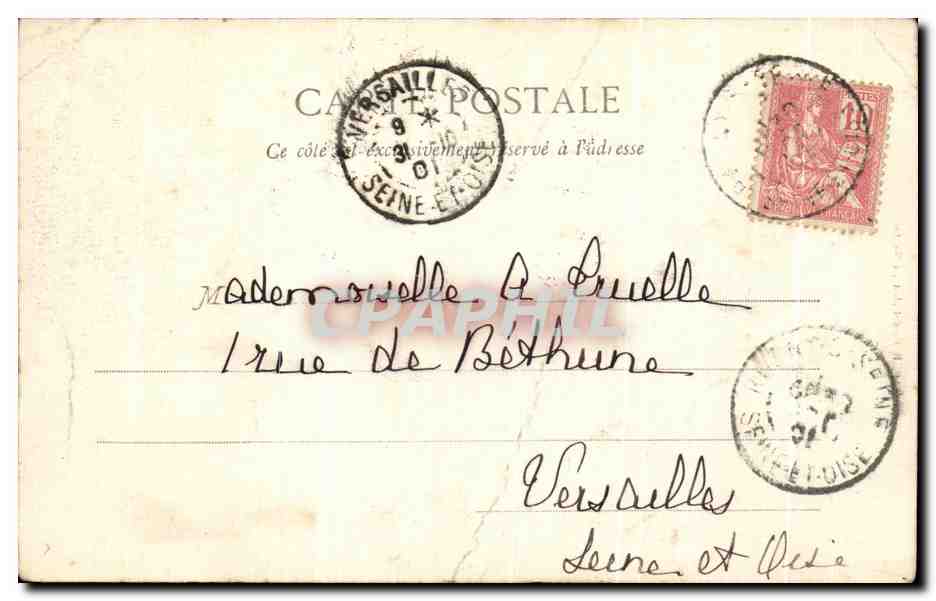 CARTE POSTALE
Ce côté est exclusivement réservé à l'adresse
VERSAILLES
9 *
31 -10
01
SEINE-ET-OISE
POSTES
10
Mademoiselle A Cruelle
CPAPHIL
1 rue de Béthune
SEINE-ET-OISE
Versailles
Seine et Oise